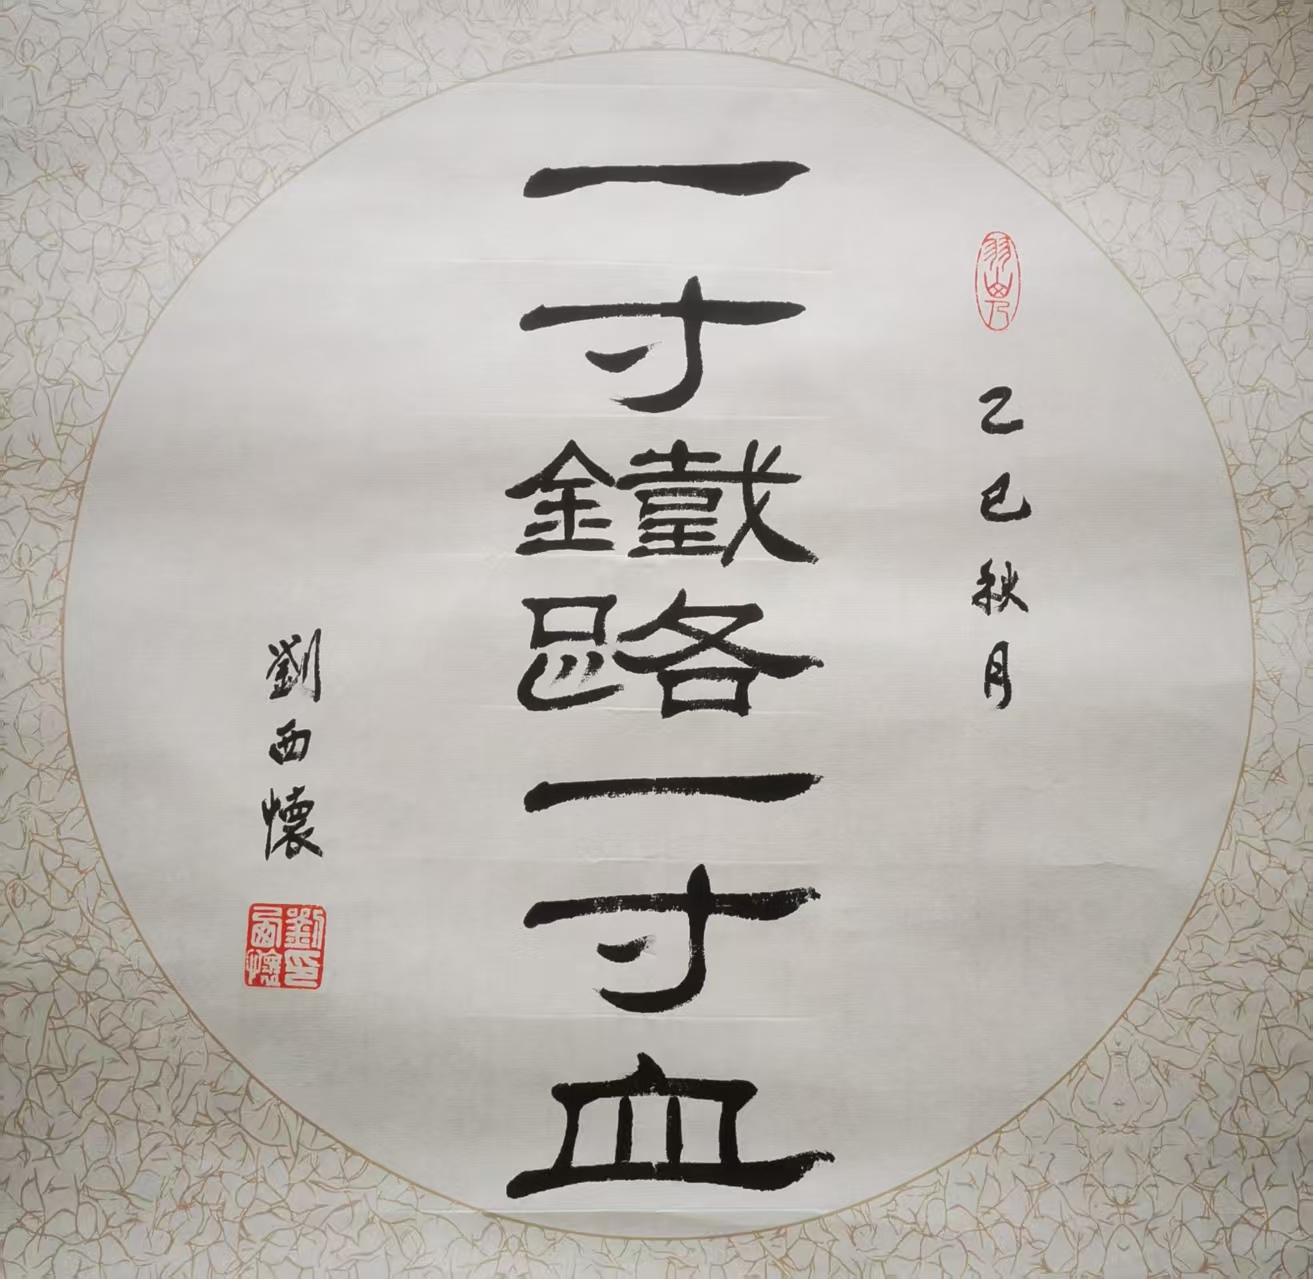 乙巳秋月
一寸鐵路一寸血
劉西懷
劉印西懷